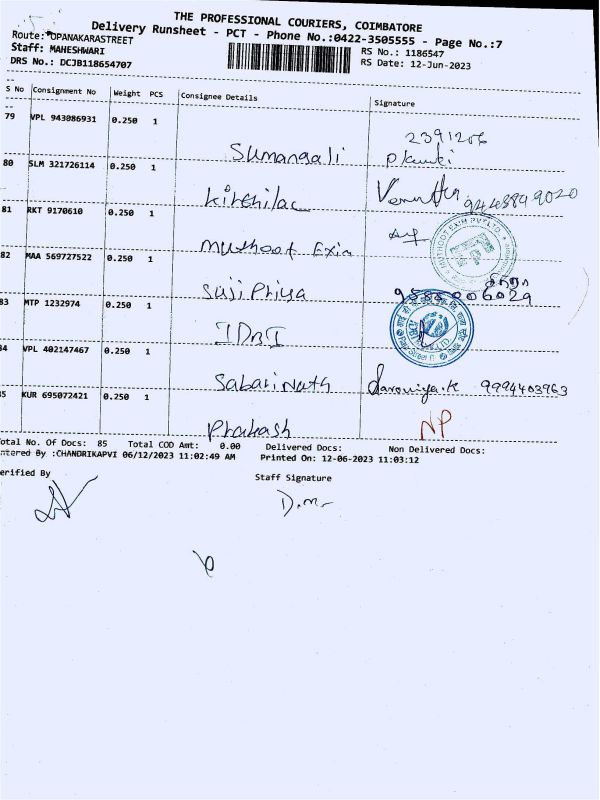 THE PROFESSIONAL COURIERS, COIMBATORE
Delivery Runsheet - PCT - Phone No.:0422-3505555 - Page No.:7
Route: OPANAKARASTREET
Staff: MAHESHWARI
DRS No.: DCJB118654707
RS No.: 1186547
RS Date: 12-Jun-2023
S No Consignment No Weight PCS Consignee Details Signature
79 VPL 943086931 0.250 1
Sumangali 2391206
80 SLM 321726114 0.250 1
Kirthilac 9443849020
81 RKT 9170610 0.250 1
Muthoot Exim
82 MAA 569727522 0.250 1
SujiPriya
83 MTP 1232974 0.250 1
IDBI
84 VPL 402147467 0.250 1
Sabarinath Saroniya.K 9994403963
85 KUR 695072421 0.250 1
Prakash NP
Total No. Of Docs: 85 Total COD Amt: 0.00 Delivered Docs: Non Delivered Docs:
Entered By :CHANDRIKAPVI 06/12/2023 11:02:49 AM Printed On: 12-06-2023 11:03:12
Verified By Staff Signature
D.m